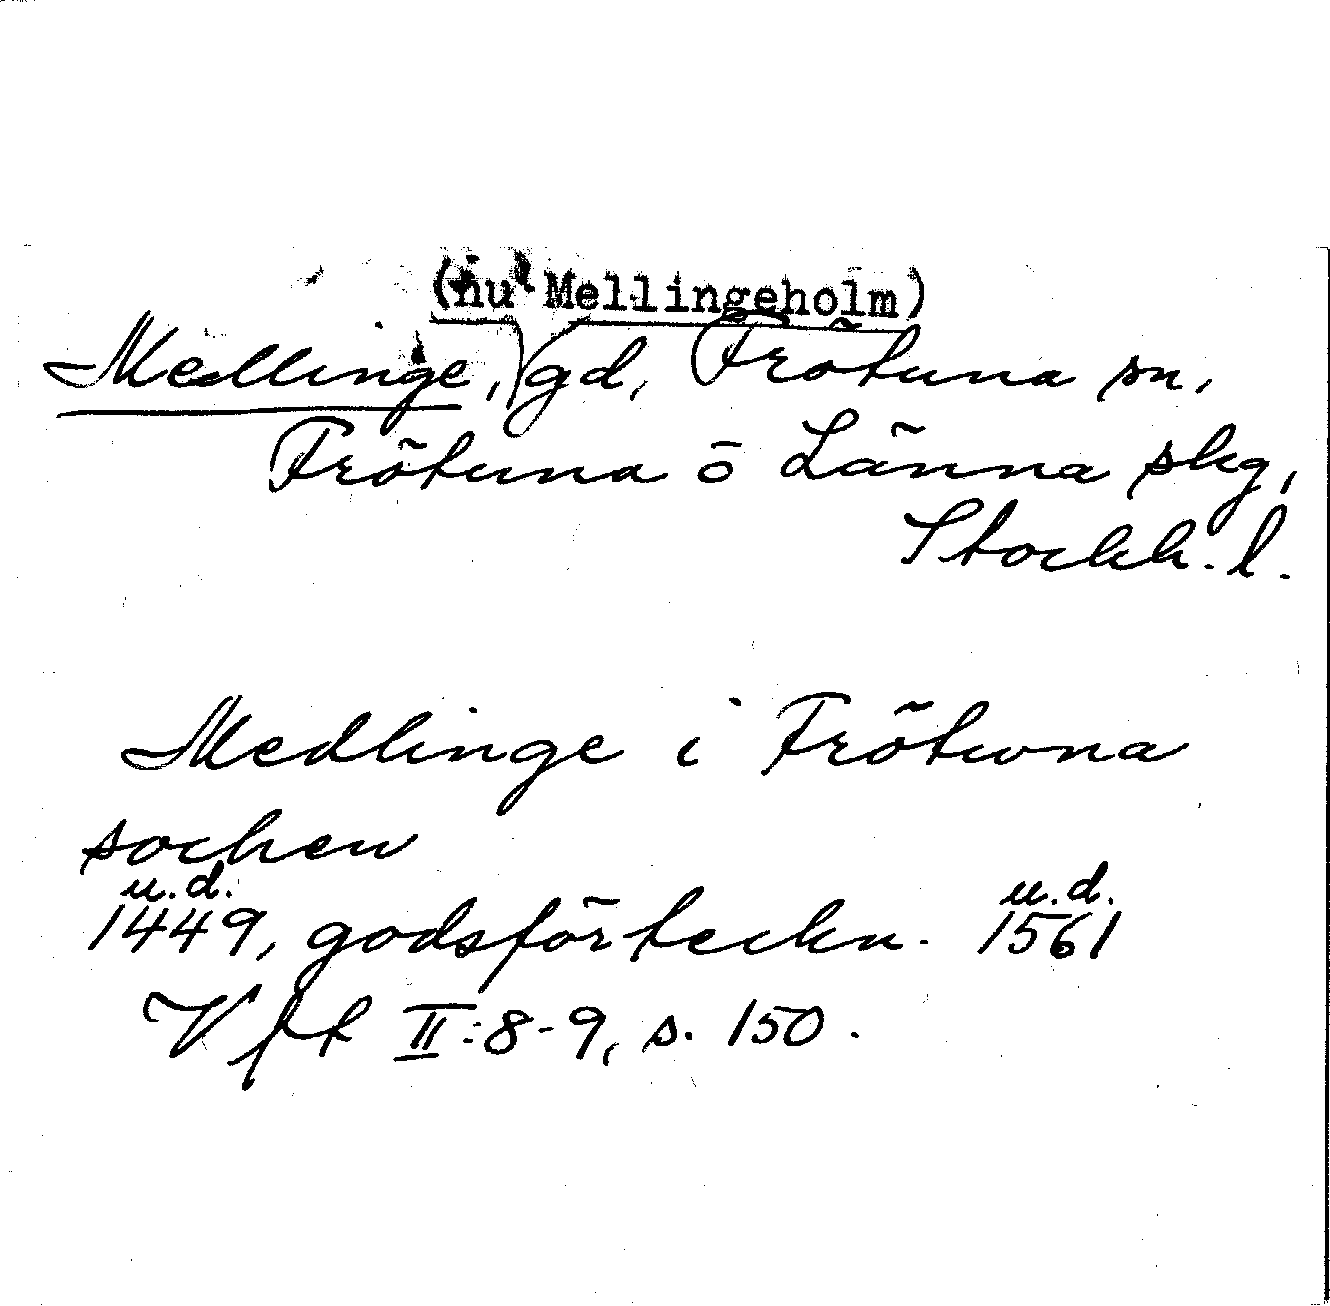 (nu Mellingeholm)
Medlinge, gd, Frötuna sn,
Frötuna o Länna skg,
Stockh. l.
Medlinge i Frötuna
socken
u.d. u.d.
1449, godsförteckn. 1561
Vff II:8-9, s. 150.